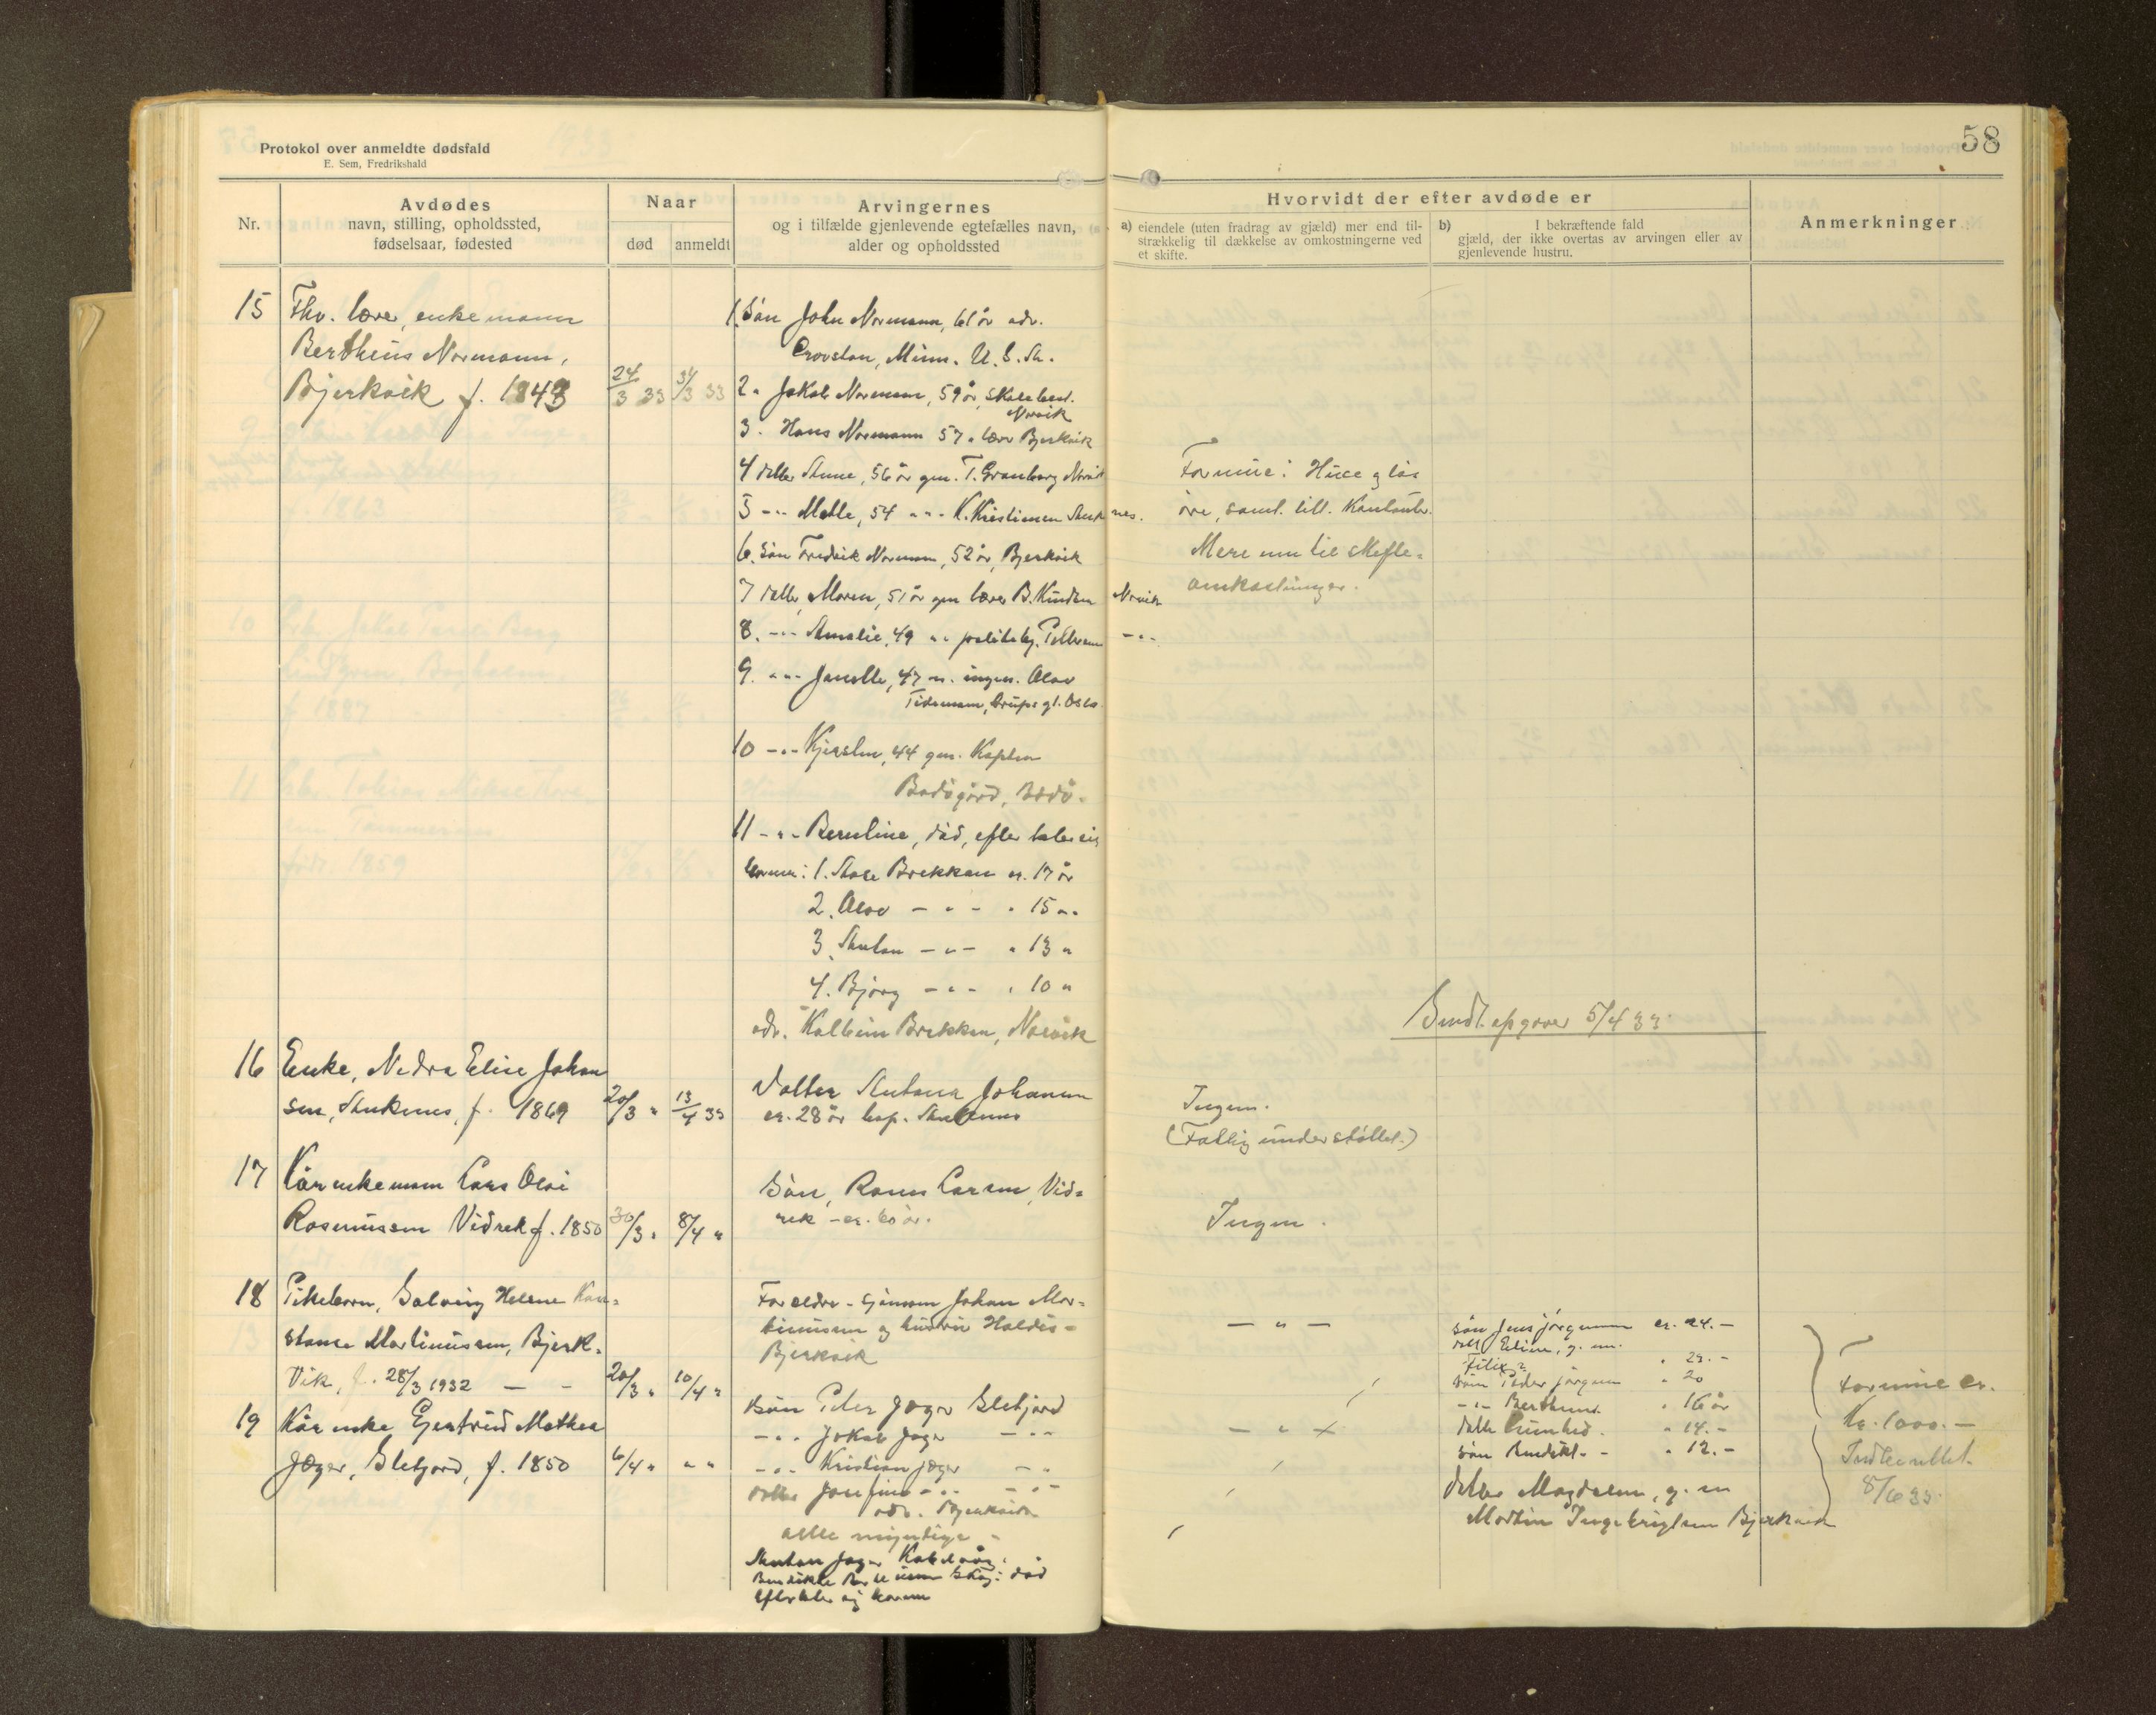 Protokol over anmeldte dødsfald
E. Sem, Fredrikshald
58
Nr.
Avdødes
navn, stilling, opholdssted,
fødselsaar, fødested
Naar
død
anmeldt
Arvingernes
og i tilfælde gjenlevende egtefælles navn,
alder og opholdssted
Hvorvidt der efter avdøde er
a) eiendele (uten fradrag av gjæld) mer end til-
strækkelig til dækkelse av omkostningerne ved
et skifte.
b) I bekræftende fald
gjæld, der ikke overtas av arvingen eller av
gjenlevende hustru.
Anmerkninger
15 Fhv. lærer, enkemann
Bertheus Normann,
Bjerkvik f. 1843 24/3 33 31/3 33
1. Søn John Normann, 61 år adr.
Minn. U. S. A.
2. " Jakob Normann, 59 år, skolebest.
Narvik
3. Hans Normann 57 " lærer Bjerkvik
4 datter Anna, 56 år gm. T. Granberg Narvik
5 - " - 54 - " - K. Kristiansen Ankenes.
6. Søn Fredrik Normann, 52 år, Bjerkvik
7 datter, Maren, 51 år gm lærer B. Knudsen Narvik
8. - " - Amalie, 49 " " politibtj. Pettersen - " -
9. - " - 47 - " - ingen. Olav
Tidemann, Oslo
10 - " - Kjersten, 44 gm. Kaptein
Bodøgård, Bodø.
11 - " - død, efterlater sig
barnene: 1. Åse Brekkan er. 17 år
2. Olav - " - " 15 - "
3. Anton - " - " 13 "
4. Bjørg - " - " 10 "
adr. Brekkan, Narvik
Formue: Huse og løs
øre, samt litt kontanter.
Mere enn til skifte-
omkostninger.
Bindt. opgave 5/4 33.
16 Enke, Nedra Elise Johan
sen, Ankenes, f. 1869 20/3 " 13/4 33
Datter Antona Johansen
er. 28 år bop. Ankenes
Ingen.
(Fattig understøttet.)
17 Kårenkemann Lars Olai
Rasmussen Vidrek f. 1850 30/3 " 8/4 "
Søn, Larsen, Vid-
rek - er. 60 år.
Ingen.
18 Pikebarn, Solveig Helene Kon-
stanse Martinussen, Bjerk-
vik, f. 28/3 1932 - - 20/3 " 10/4 "
Foreldre - sjømann Johan Mar-
tinussen og hustru Haldis -
Bjerkvik
- " -
19 Kårenke Gjertrud Mathea
Jæger, f. 1850 6/4 " " "
Søn Peter Jæger
- " - Jakob Jæger - " -
- " - Kristian Jæger - " -
datter Josefine - " - - " -
adr. Bjerkvik
alle myndige -
Anton Jæger Kabelvåg.
død
efterlater sig barnene
- " - X
søn Jens Jørgensen er. 24. -
datt. Eline, g. m.
" 23. -
søn Peder Jørgensen " 20
- " - Berthus. " 16 år
datter " 14. -
søn Benedikt. - " 12. -
datter Magdalena, g. m
Martin Ingebrigtsen Bjerkvik
Formue er.
Kr. 1000. -
Innberettet.
8/6 33.